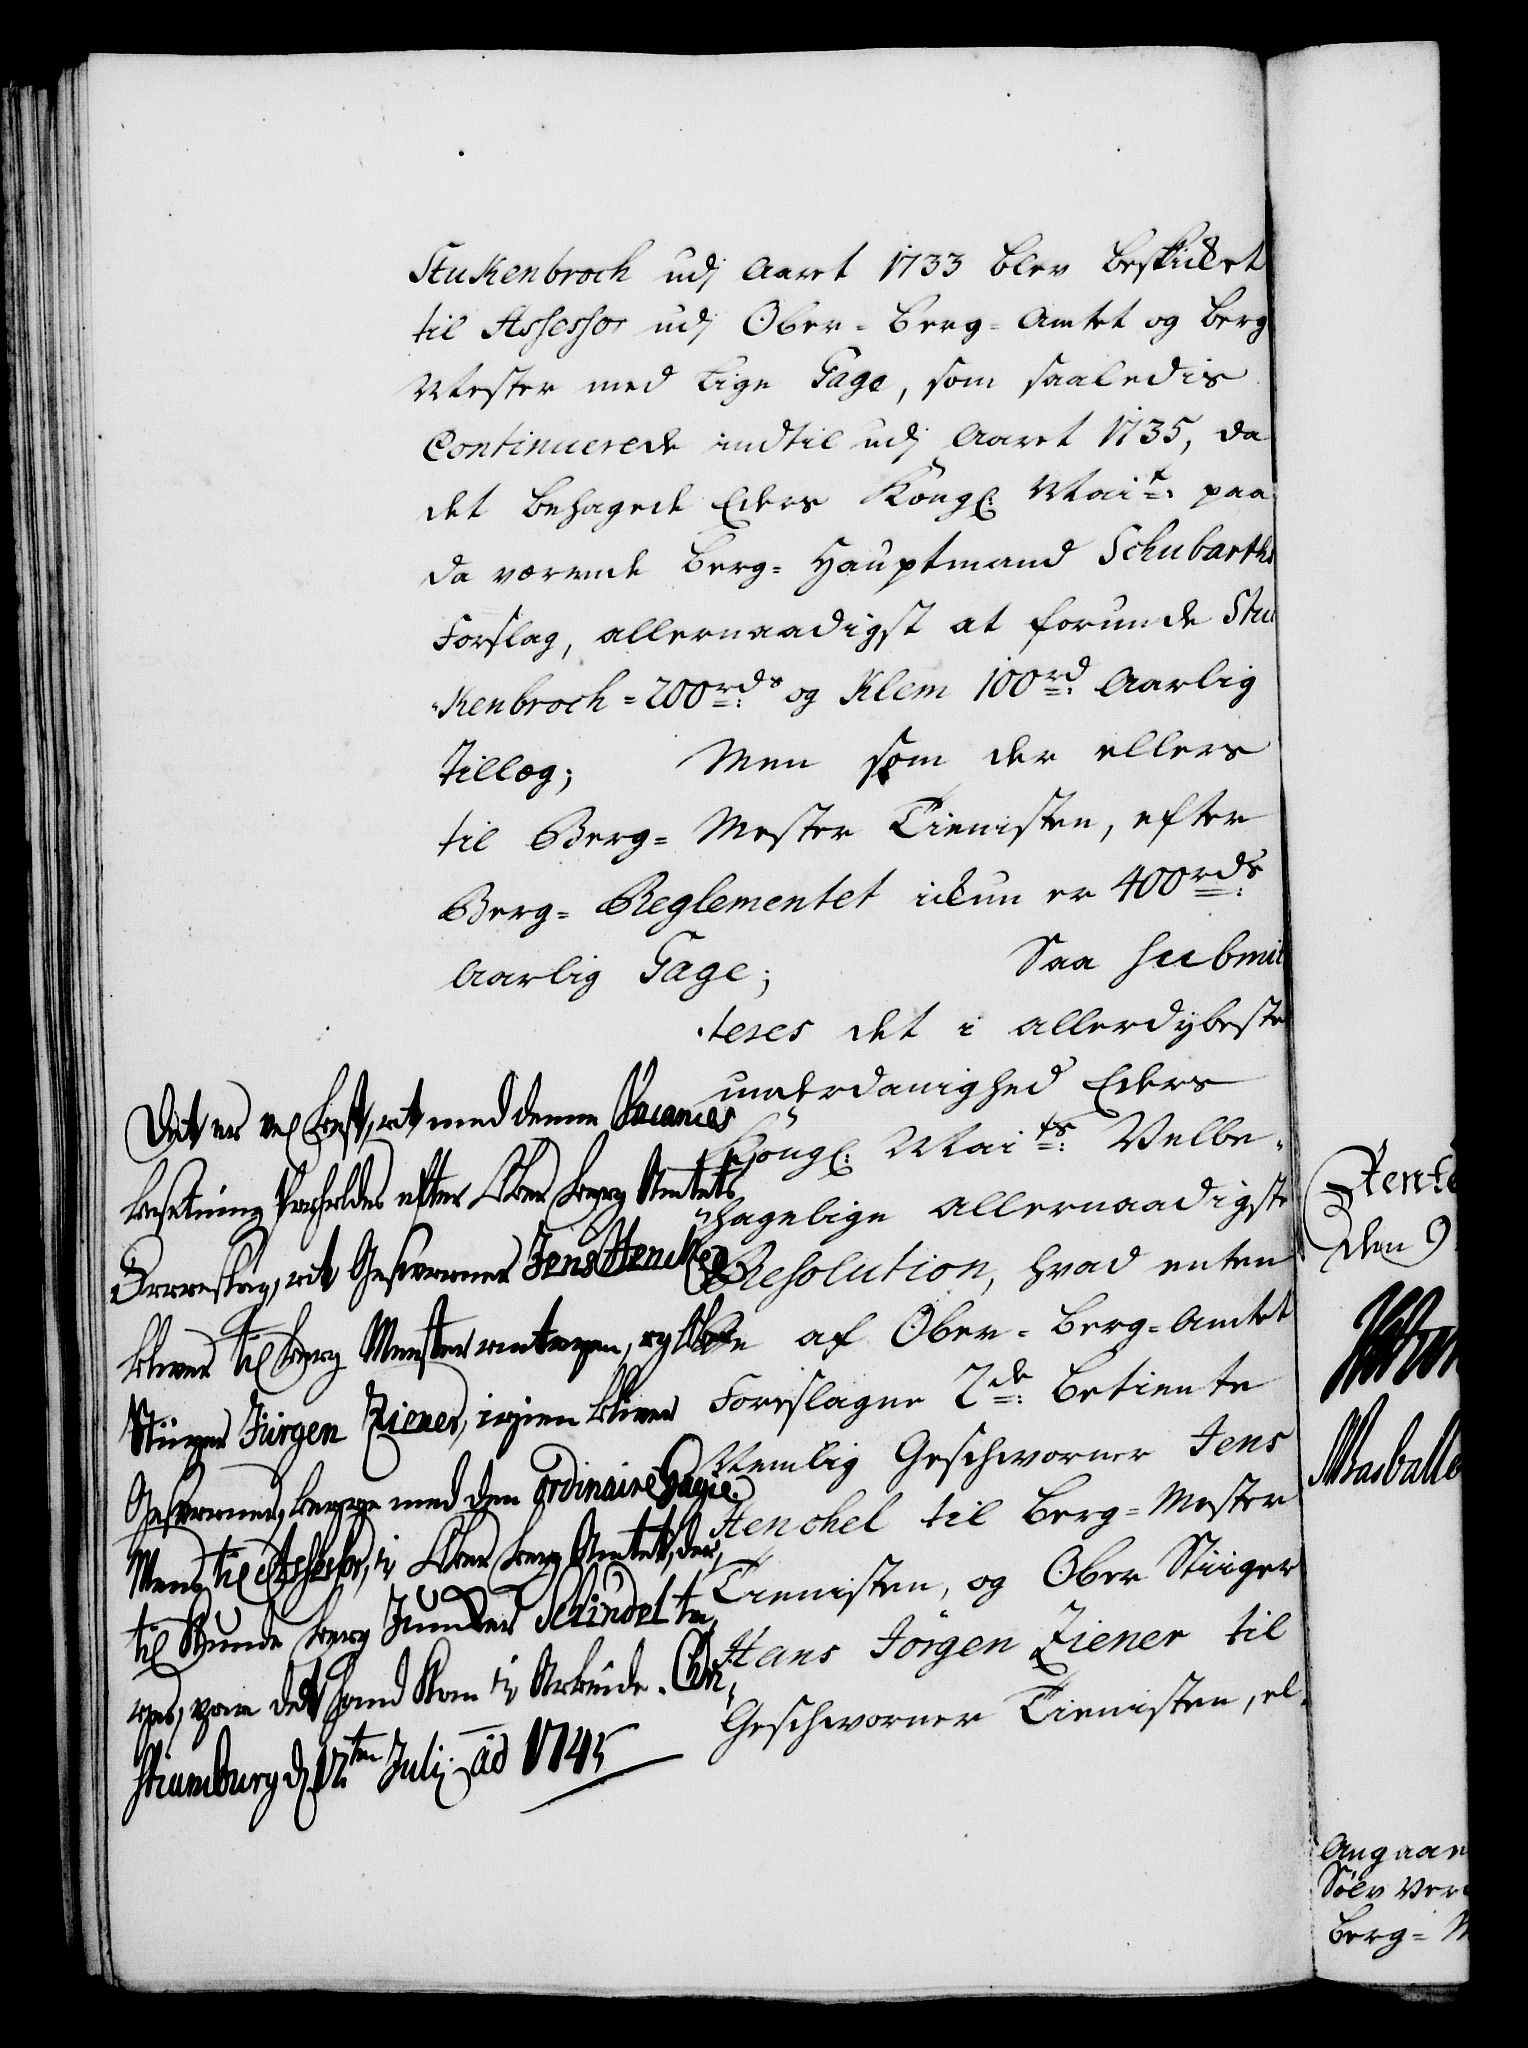 Stukenbroch udj Aaret 1733 blev beskicket
til Assessor udj Ober-Berg-Amtet og Berg
Mester med lige Gage, som saaledis
Continuerede indtil udj Aaret 1735, da
det behagede Eders Kongl: Mait: paa
da værende Berg-Hauptmand Schubarths
Forslag, allernaadigst at forunde Stu
-kenbroch = 200 rds og Klem 100 rd: Aarlig
Tillæg; Men som der ellers
til Berg-Mester Tienisten, efter
Berg-Reglementet ickun er 400 rds:
Aarlig Gage; Saa submit
-teres det i allerdybeste
underdanighed Eders
Kongl: Maits: Velbe-
-hagelige allernaadigste
Resolution, hvad enten
de af Ober-Berg-Amtet
Foreslagne 2de: Betiente
Nemlig Geschworner Jens
Henchel til Berg-Mester
Tienisten, og Ober Stiiger
Hans Jörgen Ziener til
Geschworner Tienisten, el-
Det er vel best, at med denne Vacances
besetning forholdes efter Ober Berg Amtets
Forreslag, at Gesvorner Jens Henckel
bliver til Berg Mester antagen, og Ober
Stiiger Jürgen Ziener, igien bliver
Gesvorner, begge med den ordinaire Gagie.
Mens til Assessor, i Ober Berg Amtet, der,
til kunde Berg Juncker Schindel ta,
ges, paa det hand kom i Arbeide. Chri,
stiansburg d. 12ten Julij ao 1745
Rente
den 9
Angaae
Sölv Ver
Berg-M